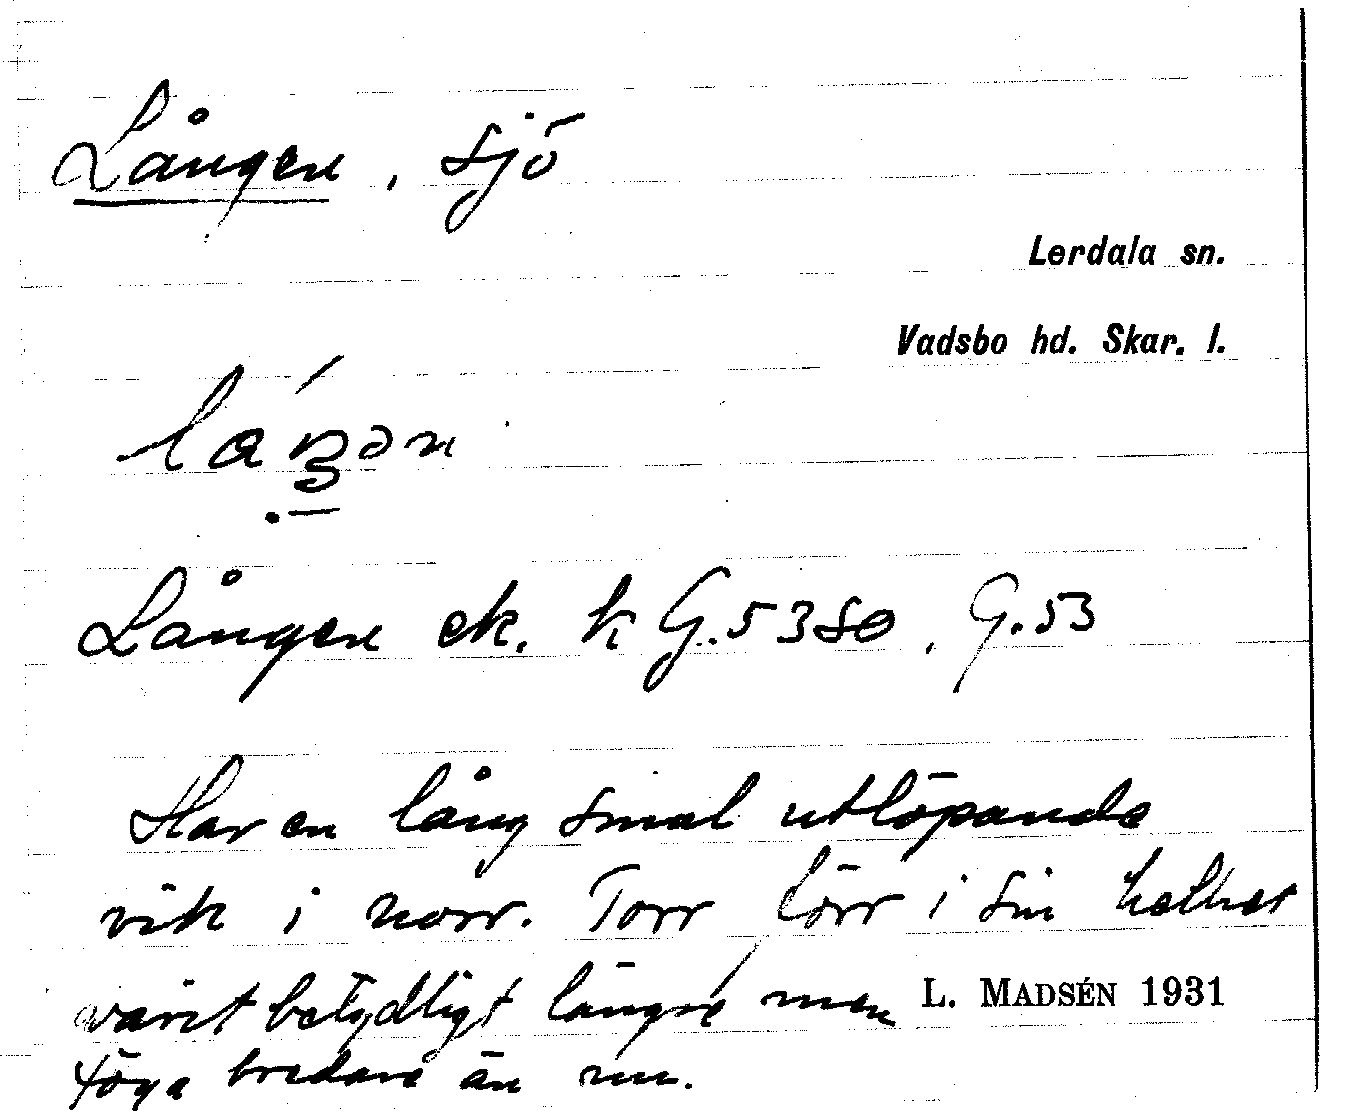 Lången, sjö
Lerdala sn.
Vadsbo hd. Skar. l.
Lången ek. k G. 5380, G. 53
Har en lång smal utlöpande
vik i norr. Torr förr i sin helhet
varit betydligt längre men
föga bredare än nu.
L. MADSÉN 1931